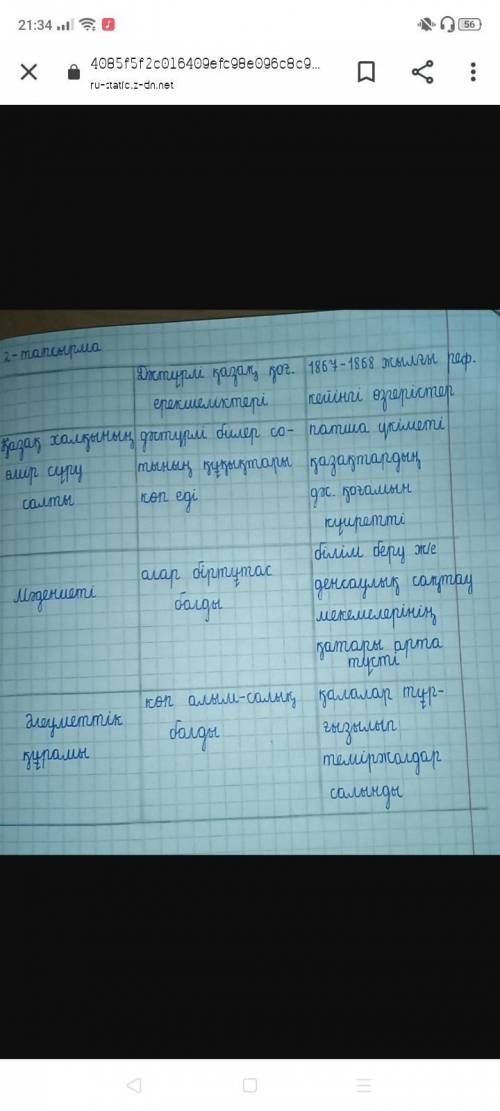 21:34
56
4085f5f2c016409efc98e096c8c9...
ru-static.z-dn.net
2-тапсырма
Дәстүрлі қазақ қоғ.
ерекшеліктері
1867-1868 жылғы реф.
кейінгі өзгерістер
Қазақ халқының
өмір сүру
салты
дәстүрлі билер со-
тының құқықтары
көп еді
патша үкіметі
қазақтардың
дәс. қоғамын
күйретті
Мәдениеті
олар біртұтас
болды
білім беру ж/е
денсаулық сақтау
мекемелерінің
қатары арта
түсті
Әлеуметтік
құрамы
көп алым-салық
болды
қалалар тұр-
ғызылып
теміржолдар
салынды